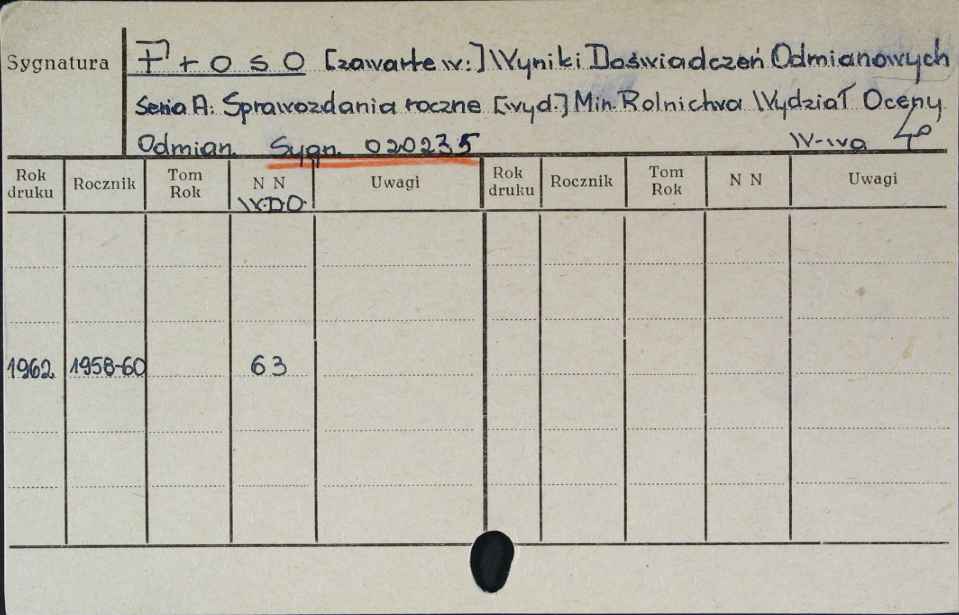 Sygnatura Proso [zawarte w:] Wyniki Doświadczeń Odmianowych
Seria A: Sprawozdania roczne [wyd.] Min. Rolnictwa Wydział Oceny
Odmian. Sygn. 020235 W-wa
Rok druku Rocznik Tom Rok N N Uwagi Rok druku Rocznik Tom Rok N N Uwagi
W.D.O.
1962 1958-60 63